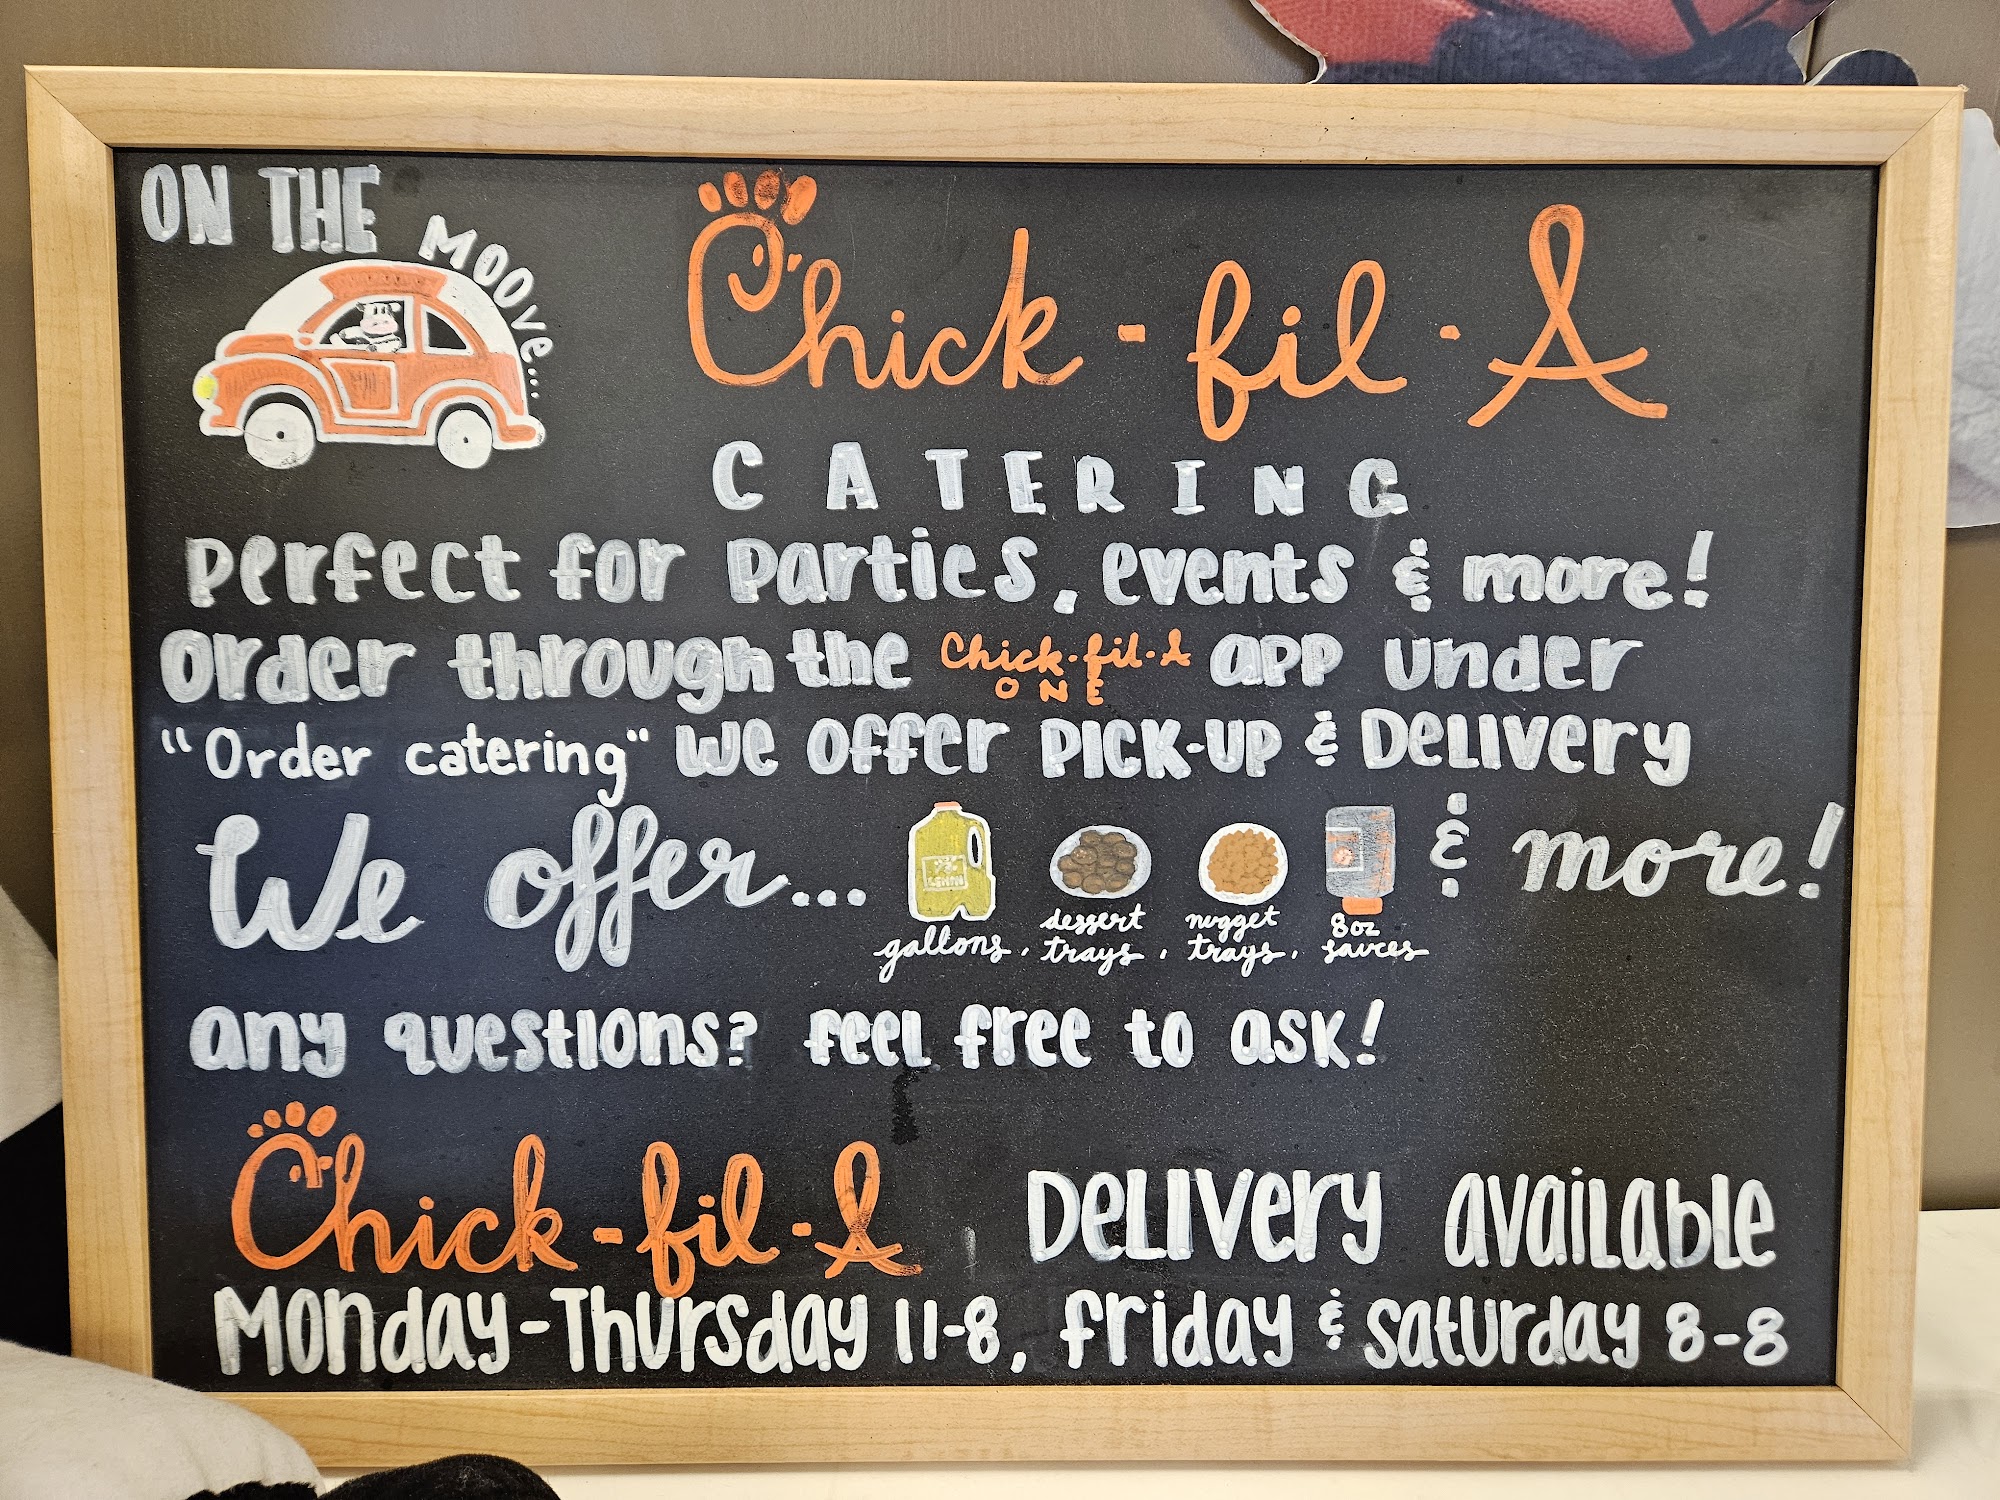 ON THE MOOVE....
Chick-fil-A
CATERING
Perfect for parties, events & more!
Order through the Chick-fil-A ONE app under
"Order catering" We offer PICK-UP & Delivery
We offer... & more!
gallons, dessert trays, nugget trays, 8oz sauces
any questions? feel free to ask!
Chick-fil-A Delivery available
Monday-Thursday 11-8, friday & saturday 8-8